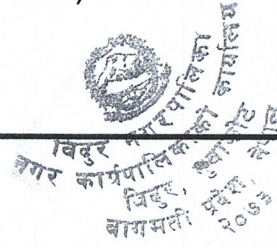 बिदुर नगरपालिका
नगर कार्यपालिकाको कार्यालय
बिदुर, नुवाकोट
बागमती प्रदेश, नेपाल
२०७३